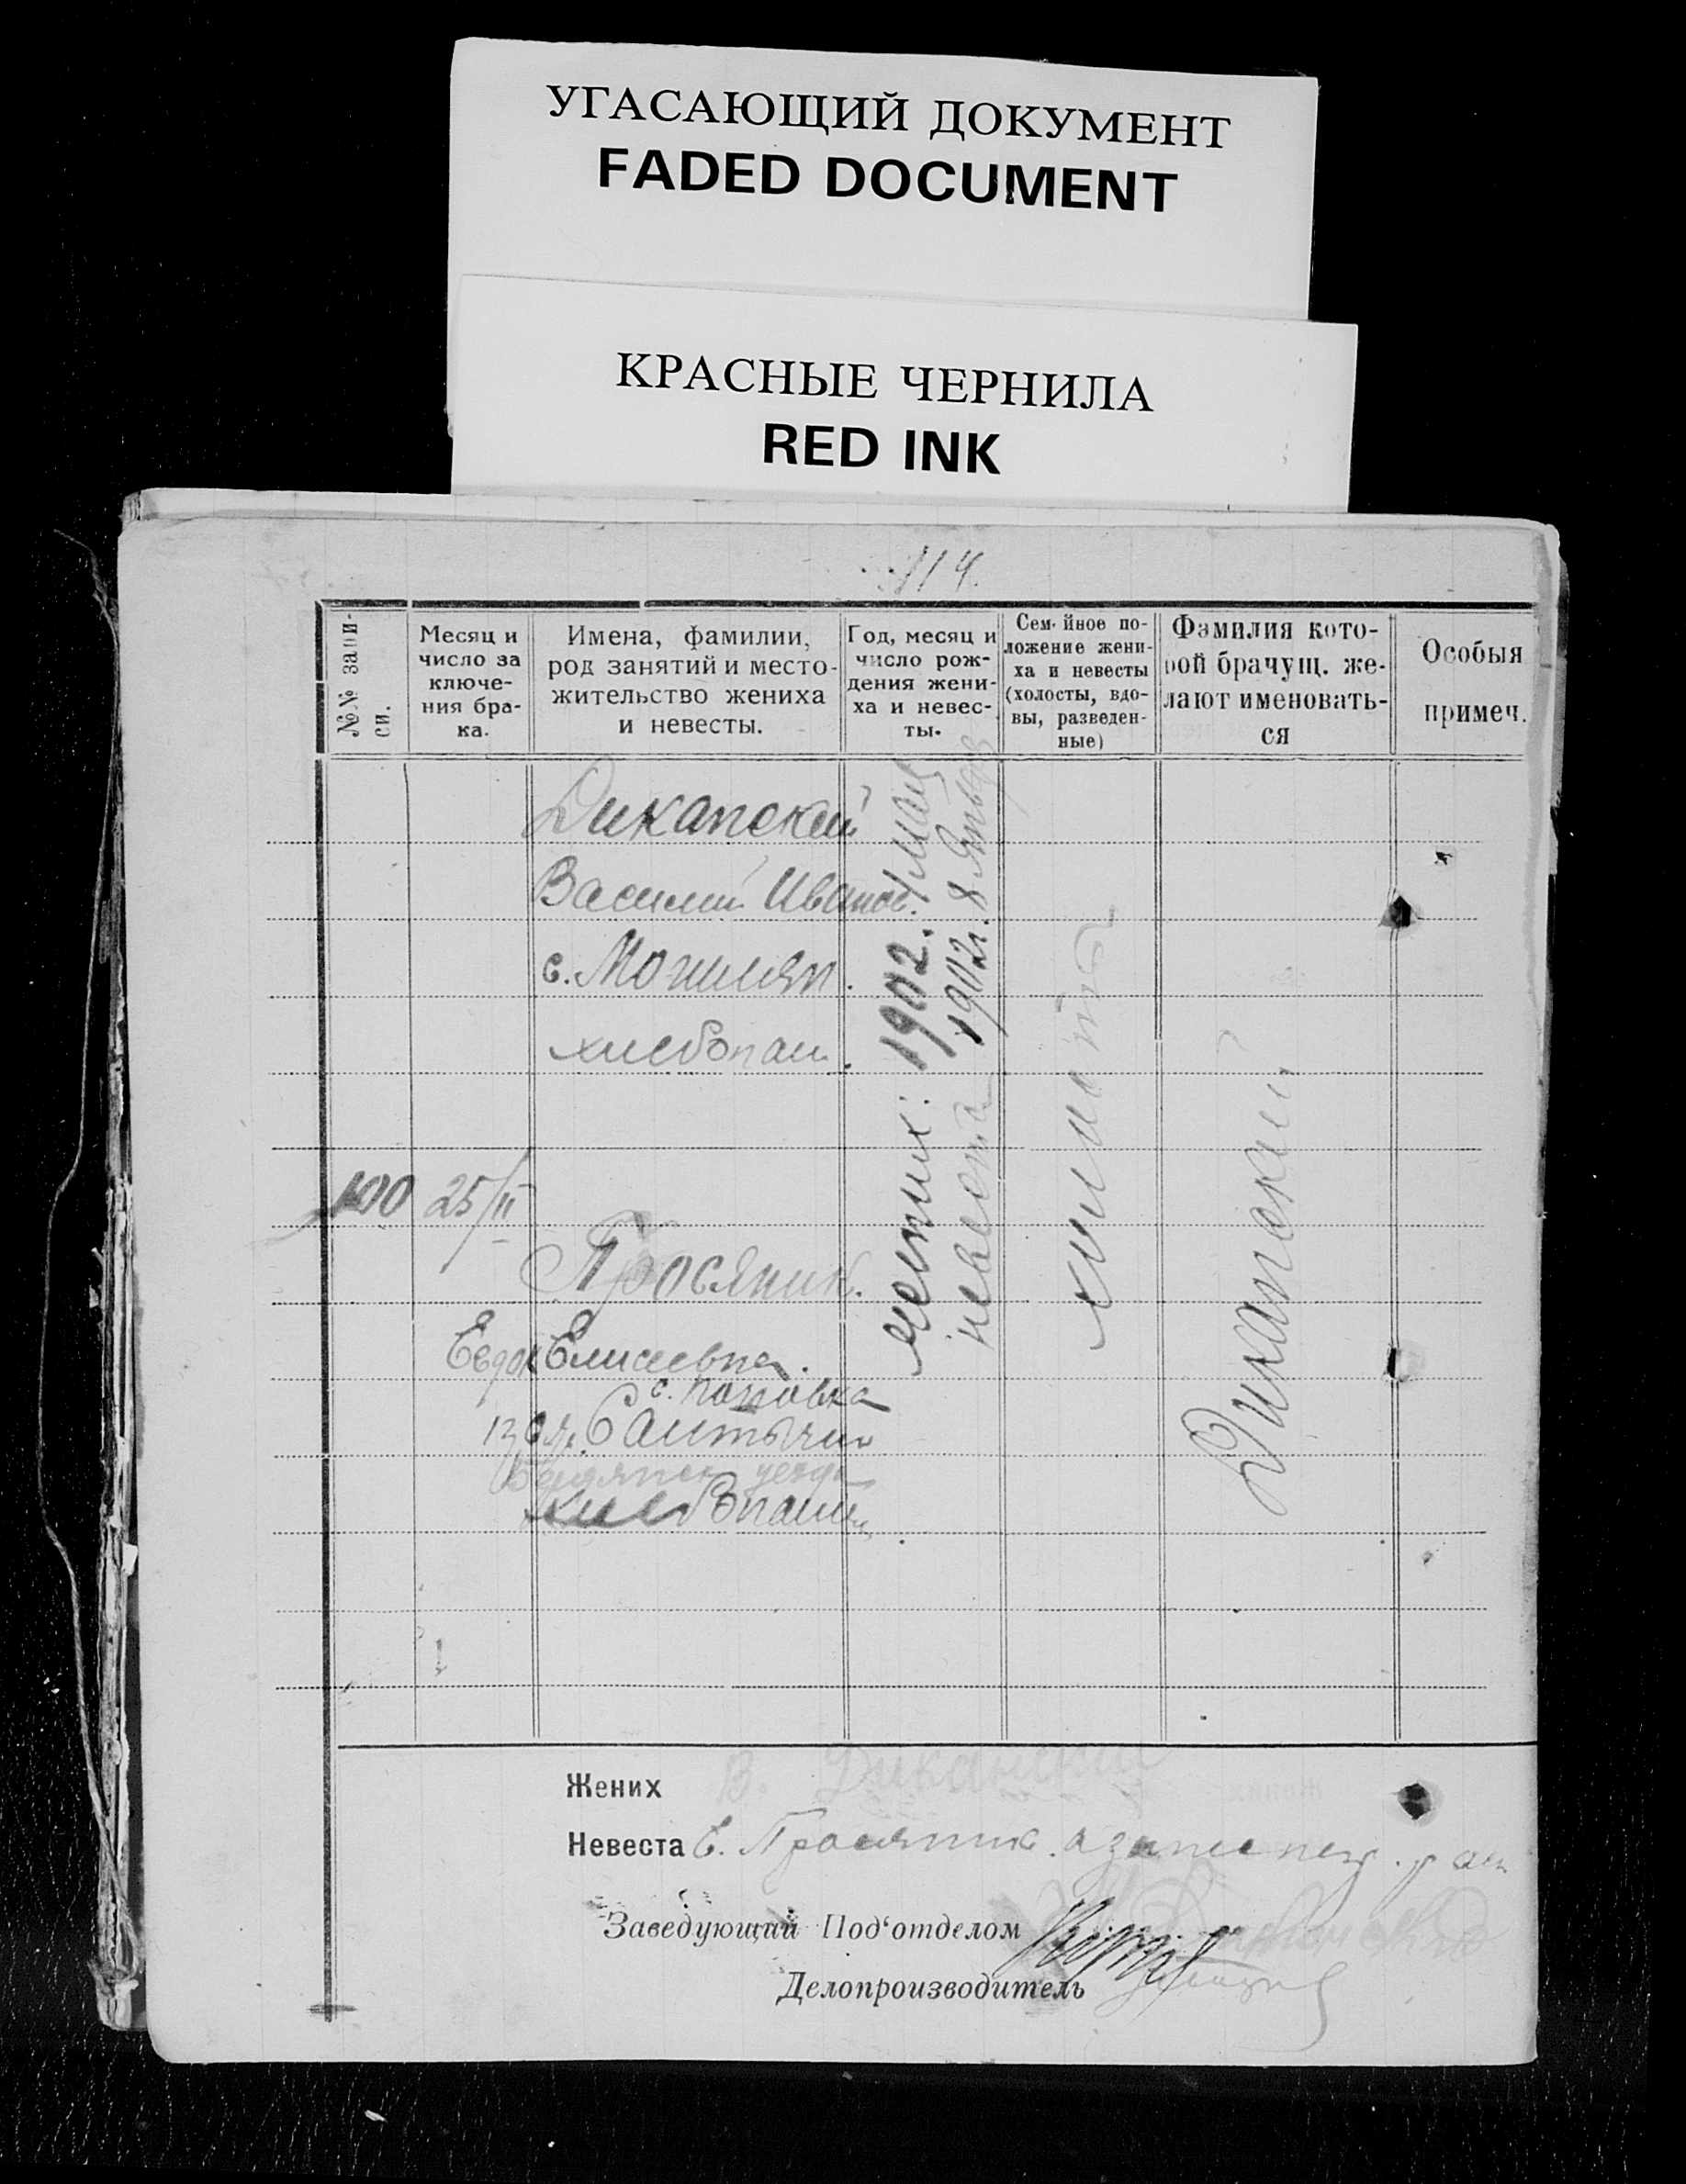 УГАСАЮЩИЙ ДОКУМЕНТ
FADED DOCUMENT
КРАСНЫЕ ЧЕРНИЛА
RED INK
114.
№№ запи-
си.
Месяц и
число за
ключе-
ния бра-
ка.
Имена, фамилии,
род занятий и место-
жительство жениха
и невесты.
Год, месяц и
число рож-
дения жени-
ха и невес-
ты.
Семейное по-
ложение жени-
ха и невесты
(холосты, вдо-
вы, разведен-
ные)
Фамилия кото-
рой брачущ. же-
лают именовать-
ся
Особыя
примеч.
Диканский
Василий Иванов.
с. Могилян.
хлебопаш.
100 25/II
Просяник.
Евдок Елисеевна.
с. Поповка
Бердянск уезда
хлебопаш
жених: 1902. 4 мая
невеста 1902г. 8 Января
холосты
Диканский
Жених В. Диканский
Невеста Е. Просяник. а за нее негр. рас
Заведующий Под'отделом
Делопроизводитель